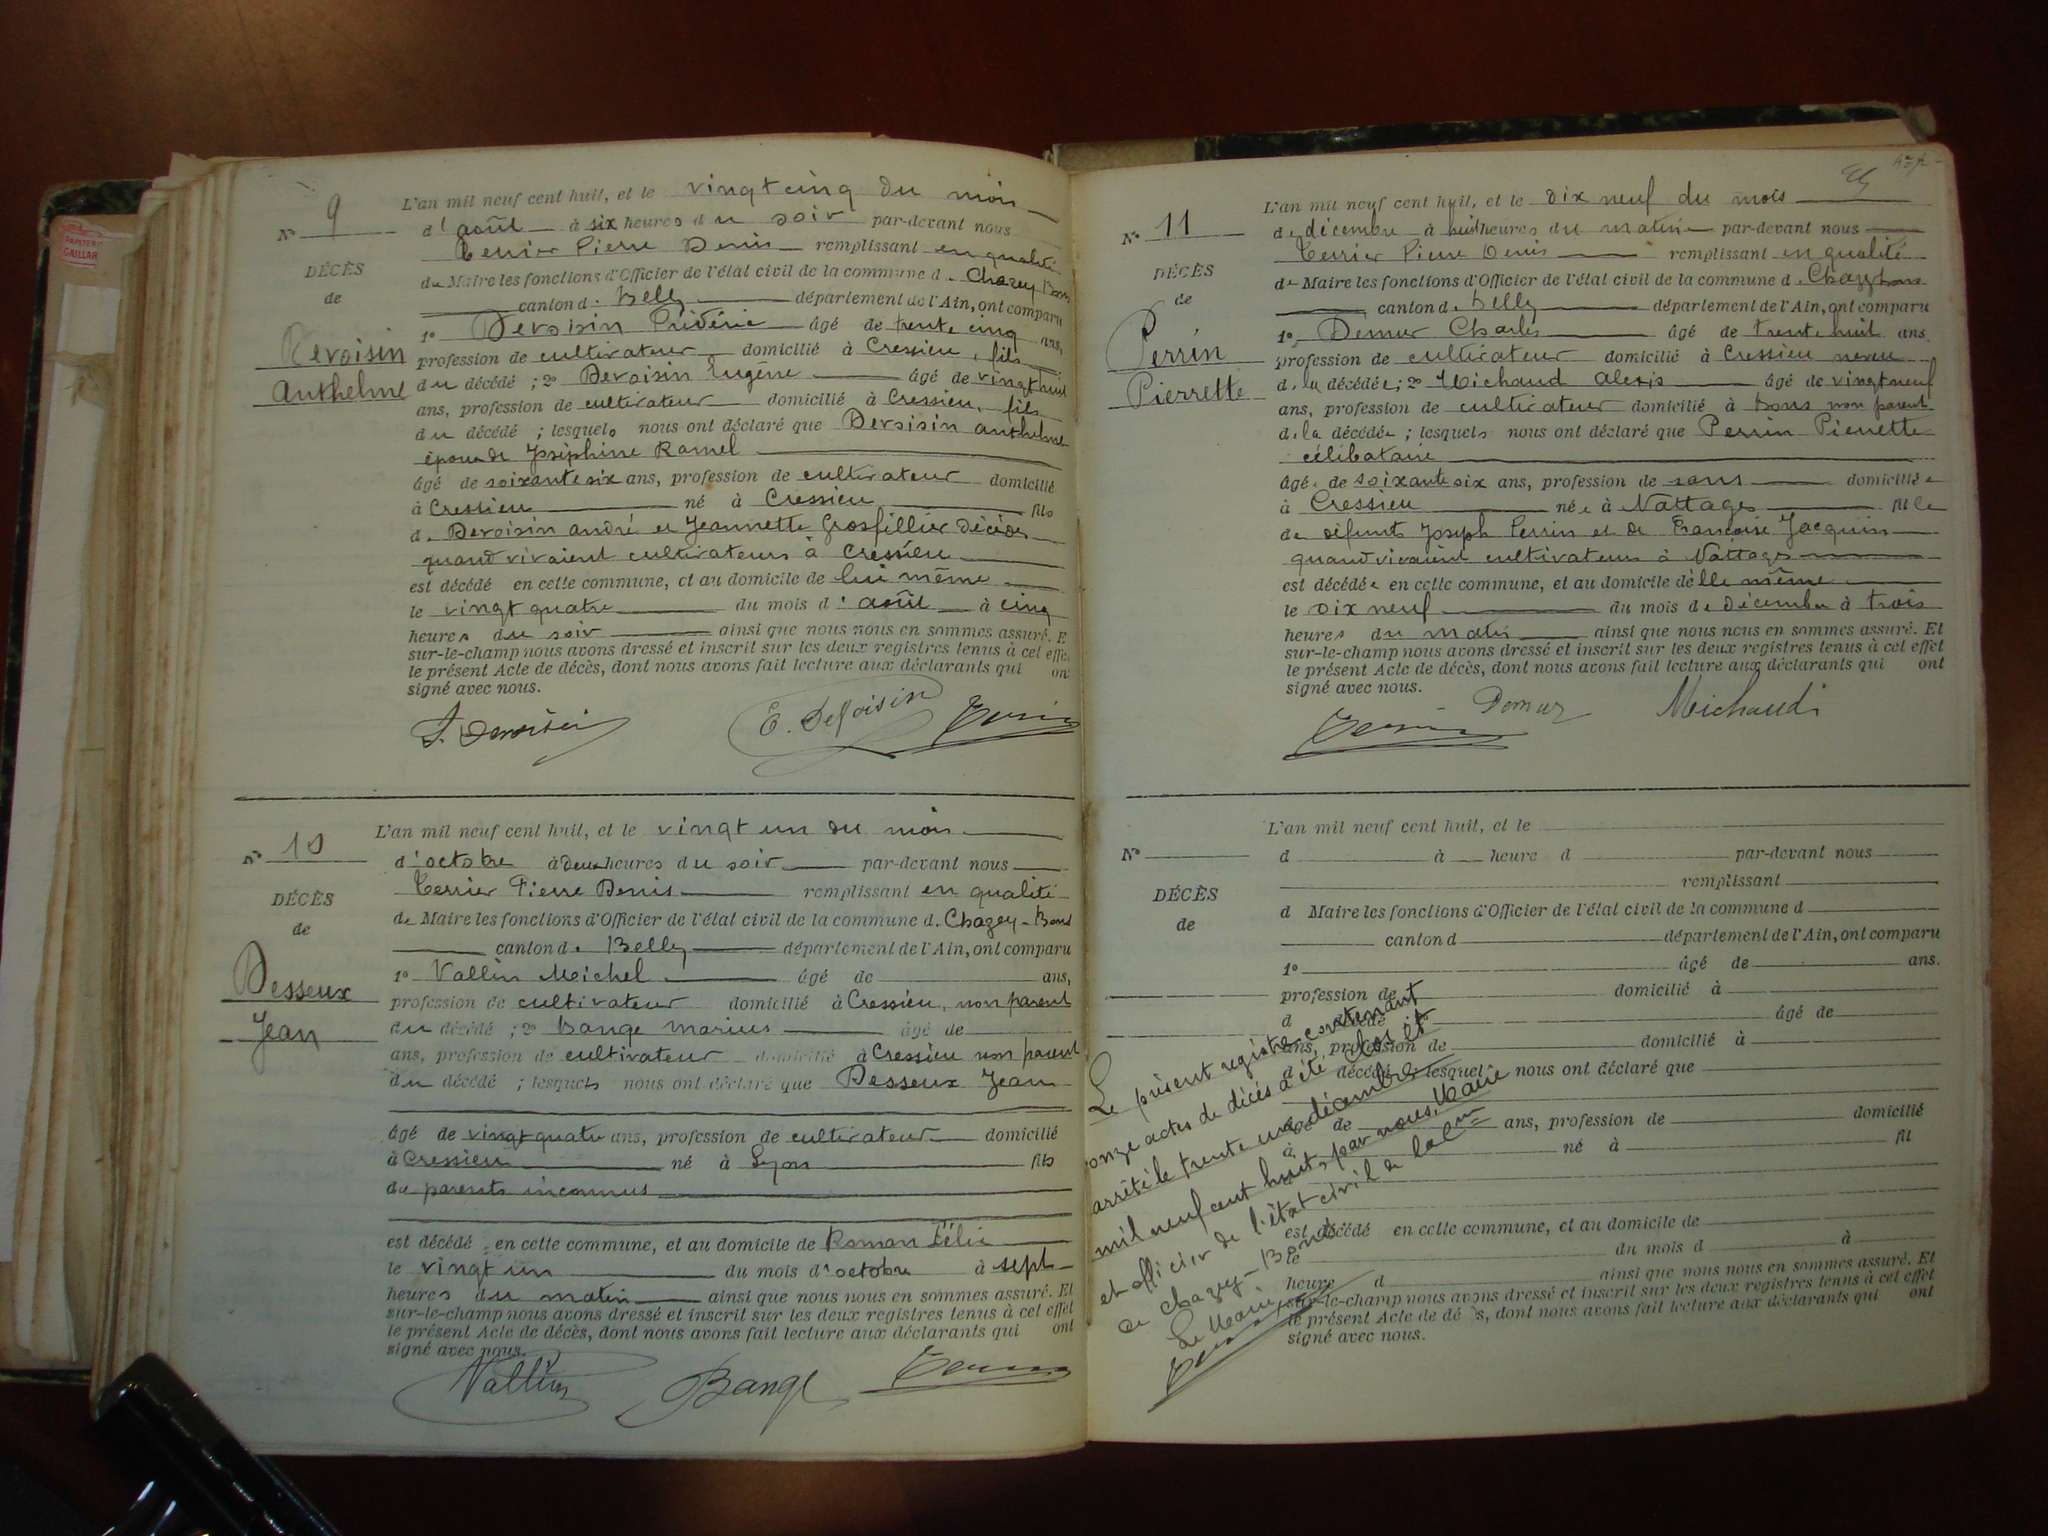 PAPETERIE
GAILLARD
N° 9
DÉCÈS
de
Devoisin
Anthelme
L'an mil neuf cent huit, et le vingt cinq du mois
d'août à six heures du soir par-devant nous
Terrier Pierre Denis remplissant en qualité
de Maire les fonctions d'Officier de l'état civil de la commune de Chazey Bons
canton de Belley département de l'Ain, ont comparu
1° Devoisin Frédéric âgé de trente cinq ans,
profession de cultivateur domicilié à Cressieu, fils
du décédé ; 2° Devoisin Eugène âgé de vingt huit
ans, profession de cultivateur domicilié à Cressieu, fils
du décédé ; lesquels nous ont déclaré que Devoisin Anthelme
époux de Joséphine Ramel
âgé de soixante six ans, profession de cultivateur domicilié
à Cressieu né à Cressieu fils
de Devoisin André et Jeannette Grosfillier décédés
quand vivaient cultivateurs à Cressieu
est décédé en cette commune, et au domicile de lui même
le vingt quatre du mois d'août à cinq
heures du soir ainsi que nous nous en sommes assuré. E
sur-le-champ nous avons dressé et inscrit sur les deux registres tenus à cet effe
le présent Acte de décès, dont nous avons fait lecture aux déclarants qui on
signé avec nous.
E. Devoisin Terrier
N° 10
DÉCÈS
de
Desseux
Jean
L'an mil neuf cent huit, et le vingt un du mois
d'octobre à deux heures du soir par-devant nous
Terrier Pierre Denis remplissant en qualité
de Maire les fonctions d'Officier de l'état civil de la commune de Chazey-Bons
canton de Belley département de l'Ain, ont comparu
1° Vallin Michel âgé de ans,
profession de cultivateur domicilié à Cressieu, non parent
du décédé ; 2° Bange Marius âgé de
ans, profession de cultivateur domicilié à Cressieu non parent
du décédé ; lesquels nous ont déclaré que Desseux Jean
âgé de vingt quatre ans, profession de cultivateur domicilié
à Cressieu né à Lyon fils
de parents inconnus
est décédé en cette commune, et au domicile de Roman Félix
le vingt un du mois d'octobre à sept
heures du matin ainsi que nous nous en sommes assuré. Et
sur-le-champ nous avons dressé et inscrit sur les deux registres tenus à cet effet
le présent Acte de décès, dont nous avons fait lecture aux déclarants qui ont
signé avec nous.
Vallin Bange Terrier
N° 11
DÉCÈS
de
Perrin
Pierrette
L'an mil neuf cent huit, et le dix neuf du mois
de décembre à huit heures du matin par-devant nous
Terrier Pierre Denis remplissant en qualité
de Maire les fonctions d'Officier de l'état civil de la commune de Chazey Bons
canton de Belley département de l'Ain, ont comparu
1° Demur Charles âgé de trente huit ans.
profession de cultivateur domicilié à Cressieu neveu
de la décédée ; 2° Michaud Alexis âgé de vingt neuf
ans, profession de cultivateur domicilié à Bons non parent
de la décédée ; lesquels nous ont déclaré que Perrin Pierrette
célibataire
âgée de soixante six ans, profession de sans domiciliée
à Cressieu née à Nattages fille
de défunts Joseph Perrin et de Françoise Jacquin
quand vivaient cultivateurs à Nattages
est décédée en cette commune, et au domicile d'elle même
le dix neuf du mois de décembre à trois
heures du matin ainsi que nous nous en sommes assuré. Et
sur-le-champ nous avons dressé et inscrit sur les deux registres tenus à cet effet
le présent Acte de décès, dont nous avons fait lecture aux déclarants qui ont
signé avec nous.
Terrier Demur Michaud
N°
DÉCÈS
de
L'an mil neuf cent huit, et le
d à heure d par-devant nous
remplissant
d Maire les fonctions d'Officier de l'état civil de la commune d
canton d département de l'Ain, ont comparu
1° âgé de ans.
profession de domicilié à
d décédé ; 2° âgé de
ans, profession de domicilié à
d décédé ; lesquel nous ont déclaré que
âgé de ans, profession de domicilié
à né à fil
est décédé en cette commune, et au domicile de
le du mois d à
heure d ainsi que nous nous en sommes assuré. Et
sur-le-champ nous avons dressé et inscrit sur les deux registres tenus à cet effet
le présent Acte de décès, dont nous avons fait lecture aux déclarants qui ont
signé avec nous.
Le présent registre contenant
onze actes de décès a été clos et
arrêté le trente un décembre
mil neuf cent huit, par nous, Maire
et officier de l'état civil de la Cne
de Chazey-Bons
Le Maire
Terrier